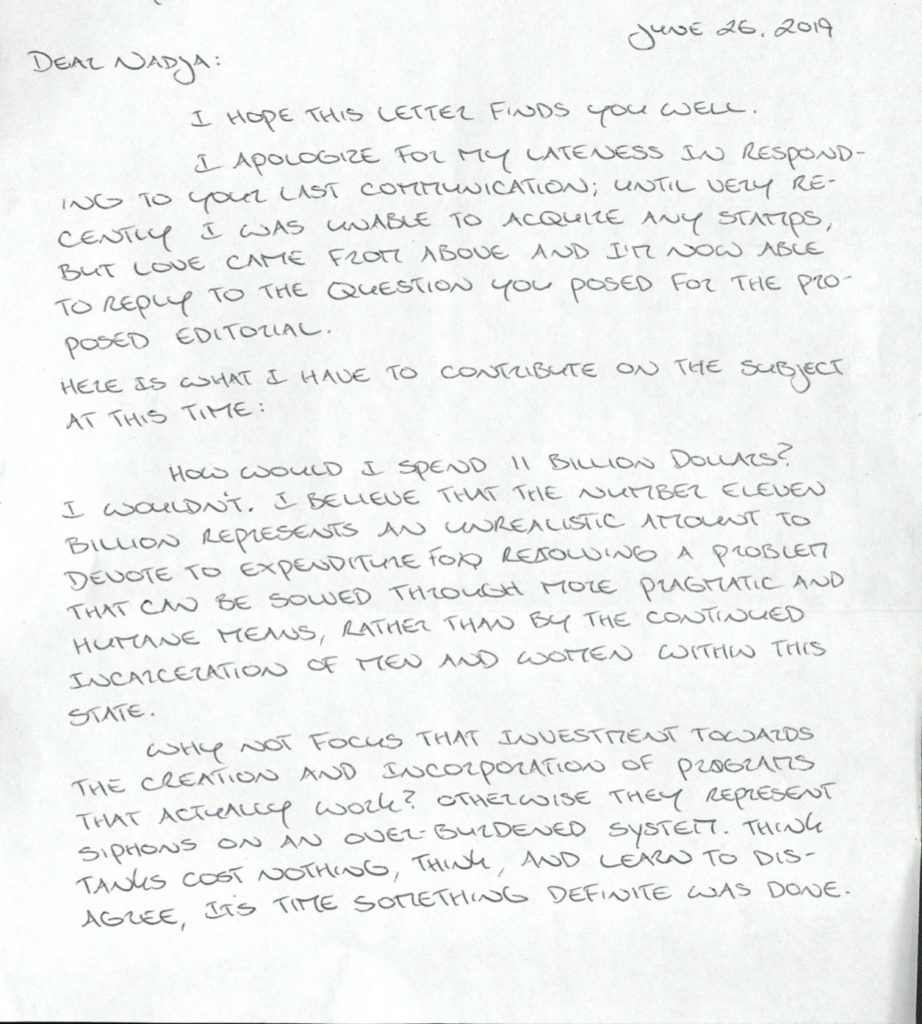 JUNE 26, 2019
DEAR NADJA:
I HOPE THIS LETTER FINDS YOU WELL.
I APOLOGIZE FOR MY LATENESS IN RESPOND-
ING TO YOUR LAST COMMUNICATION; UNTIL VERY RE-
CENTLY I WAS UNABLE TO ACQUIRE ANY STAMPS,
BUT LOVE CAME FROM ABOVE AND I'M NOW ABLE
TO REPLY TO THE QUESTION YOU POSED FOR THE PRO-
POSED EDITORIAL.
HERE IS WHAT I HAVE TO CONTRIBUTE ON THE SUBJECT
AT THIS TIME:
HOW WOULD I SPEND 11 BILLION DOLLARS?
I WOULDN'T. I BELIEVE THAT THE NUMBER ELEVEN
BILLION REPRESENTS AN UNREALISTIC AMOUNT TO
DEVOTE TO EXPENDITURE FOR RESOLVING A PROBLEM
THAT CAN BE SOLVED THROUGH MORE PRAGMATIC AND
HUMANE MEANS, RATHER THAN BY THE CONTINUED
INCARCERATION OF MEN AND WOMEN WITHIN THIS
STATE.
WHY NOT FOCUS THAT INVESTMENT TOWARDS
THE CREATION AND INCORPORATION OF PROGRAMS
THAT ACTUALLY WORK? OTHERWISE THEY REPRESENT
SIPHONS ON AN OVER-BURDENED SYSTEM. THINK
TANKS COST NOTHING, THINK, AND LEARN TO DIS-
AGREE, IT'S TIME SOMETHING DEFINITE WAS DONE.